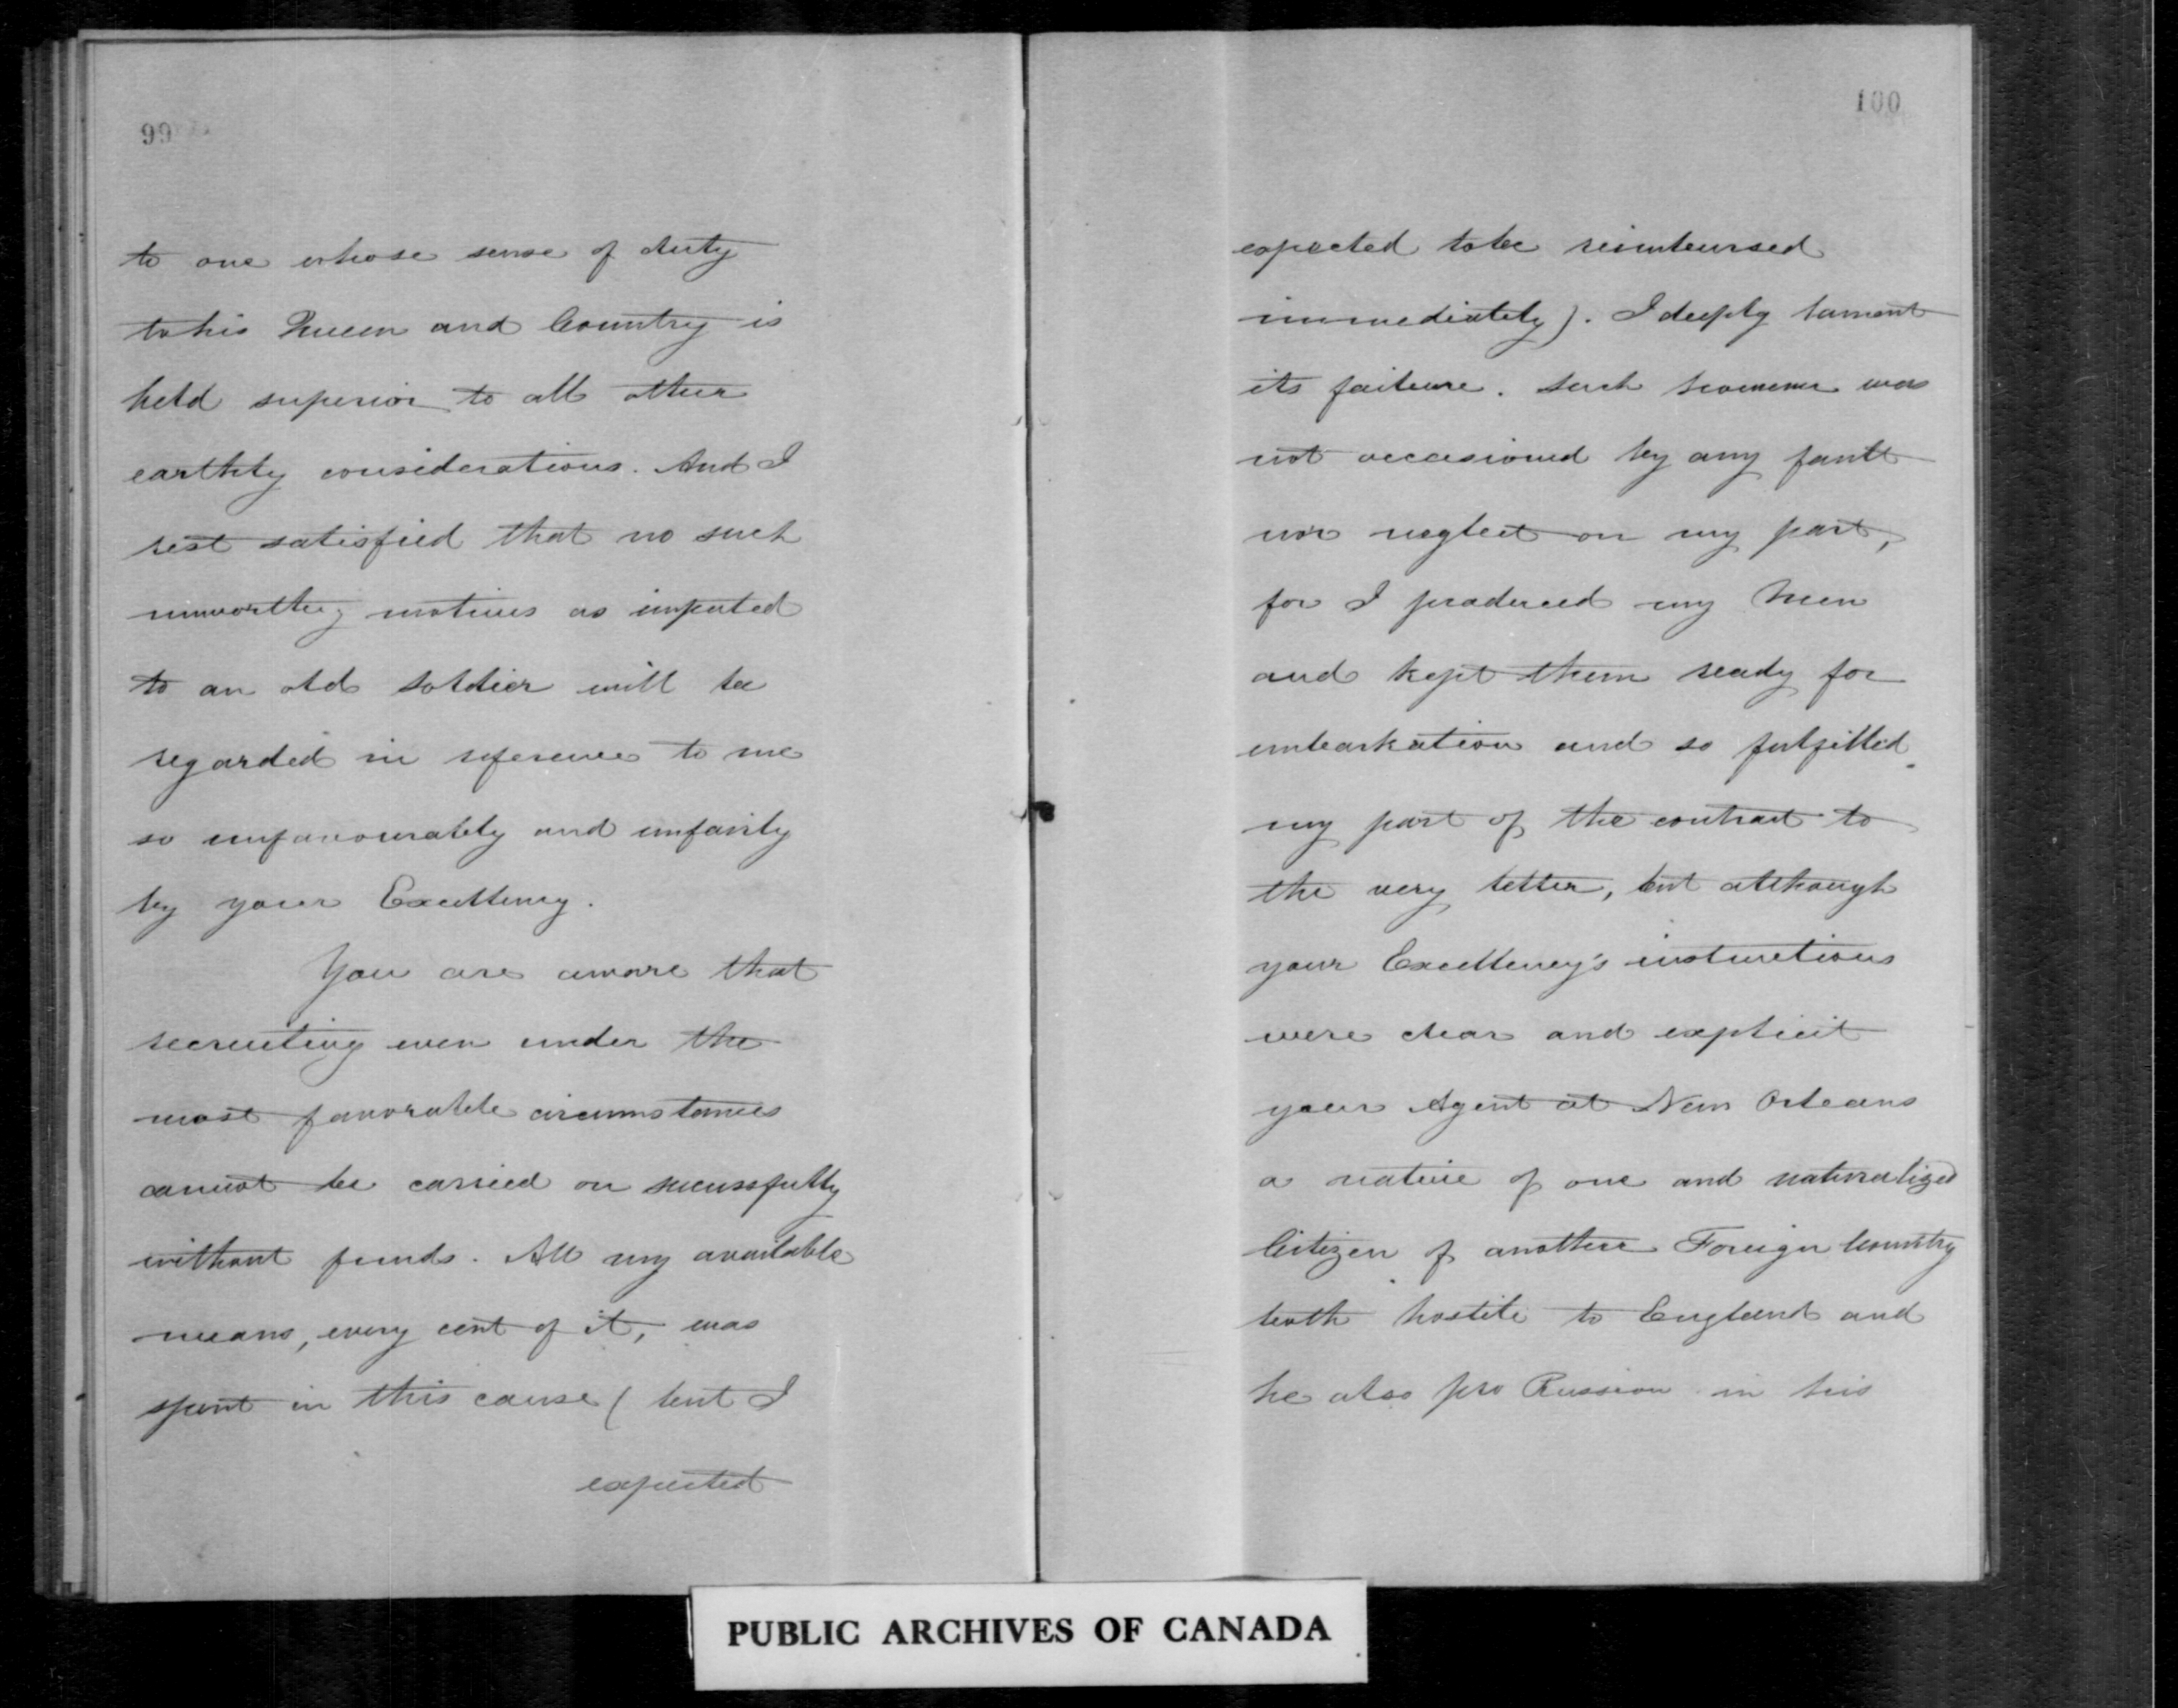 99
to one whose sense of duty
to his Queen and Country is
held superior to all other
earthly considerations. And I
rest satisfied that no such
unworthy motives as imputed
to an old soldier will be
regarded in reference to me
so unfavourably and unfairly
by your Excellency.
You are aware that
recruiting even under the
most favorable circumstances
cannot be carried on successfully
without funds. All my available
means, every cent of it, was
spent in this cause ( but I
expected
100
expected to be reimbursed
immediately). I deeply lament
its failure. Such however was
not occasioned by any fault
nor neglect on my part,
for I produced my Men
and kept them ready for
embarkation and so fulfilled
my part of the contract to
the very letter, but although
your Excellency's instructions
were clear and explicit
your Agent at New Orleans
a native of one and naturalized
Citizen of another Foreign Country
both hostile to England and
he also pro Russian in his
PUBLIC ARCHIVES OF CANADA